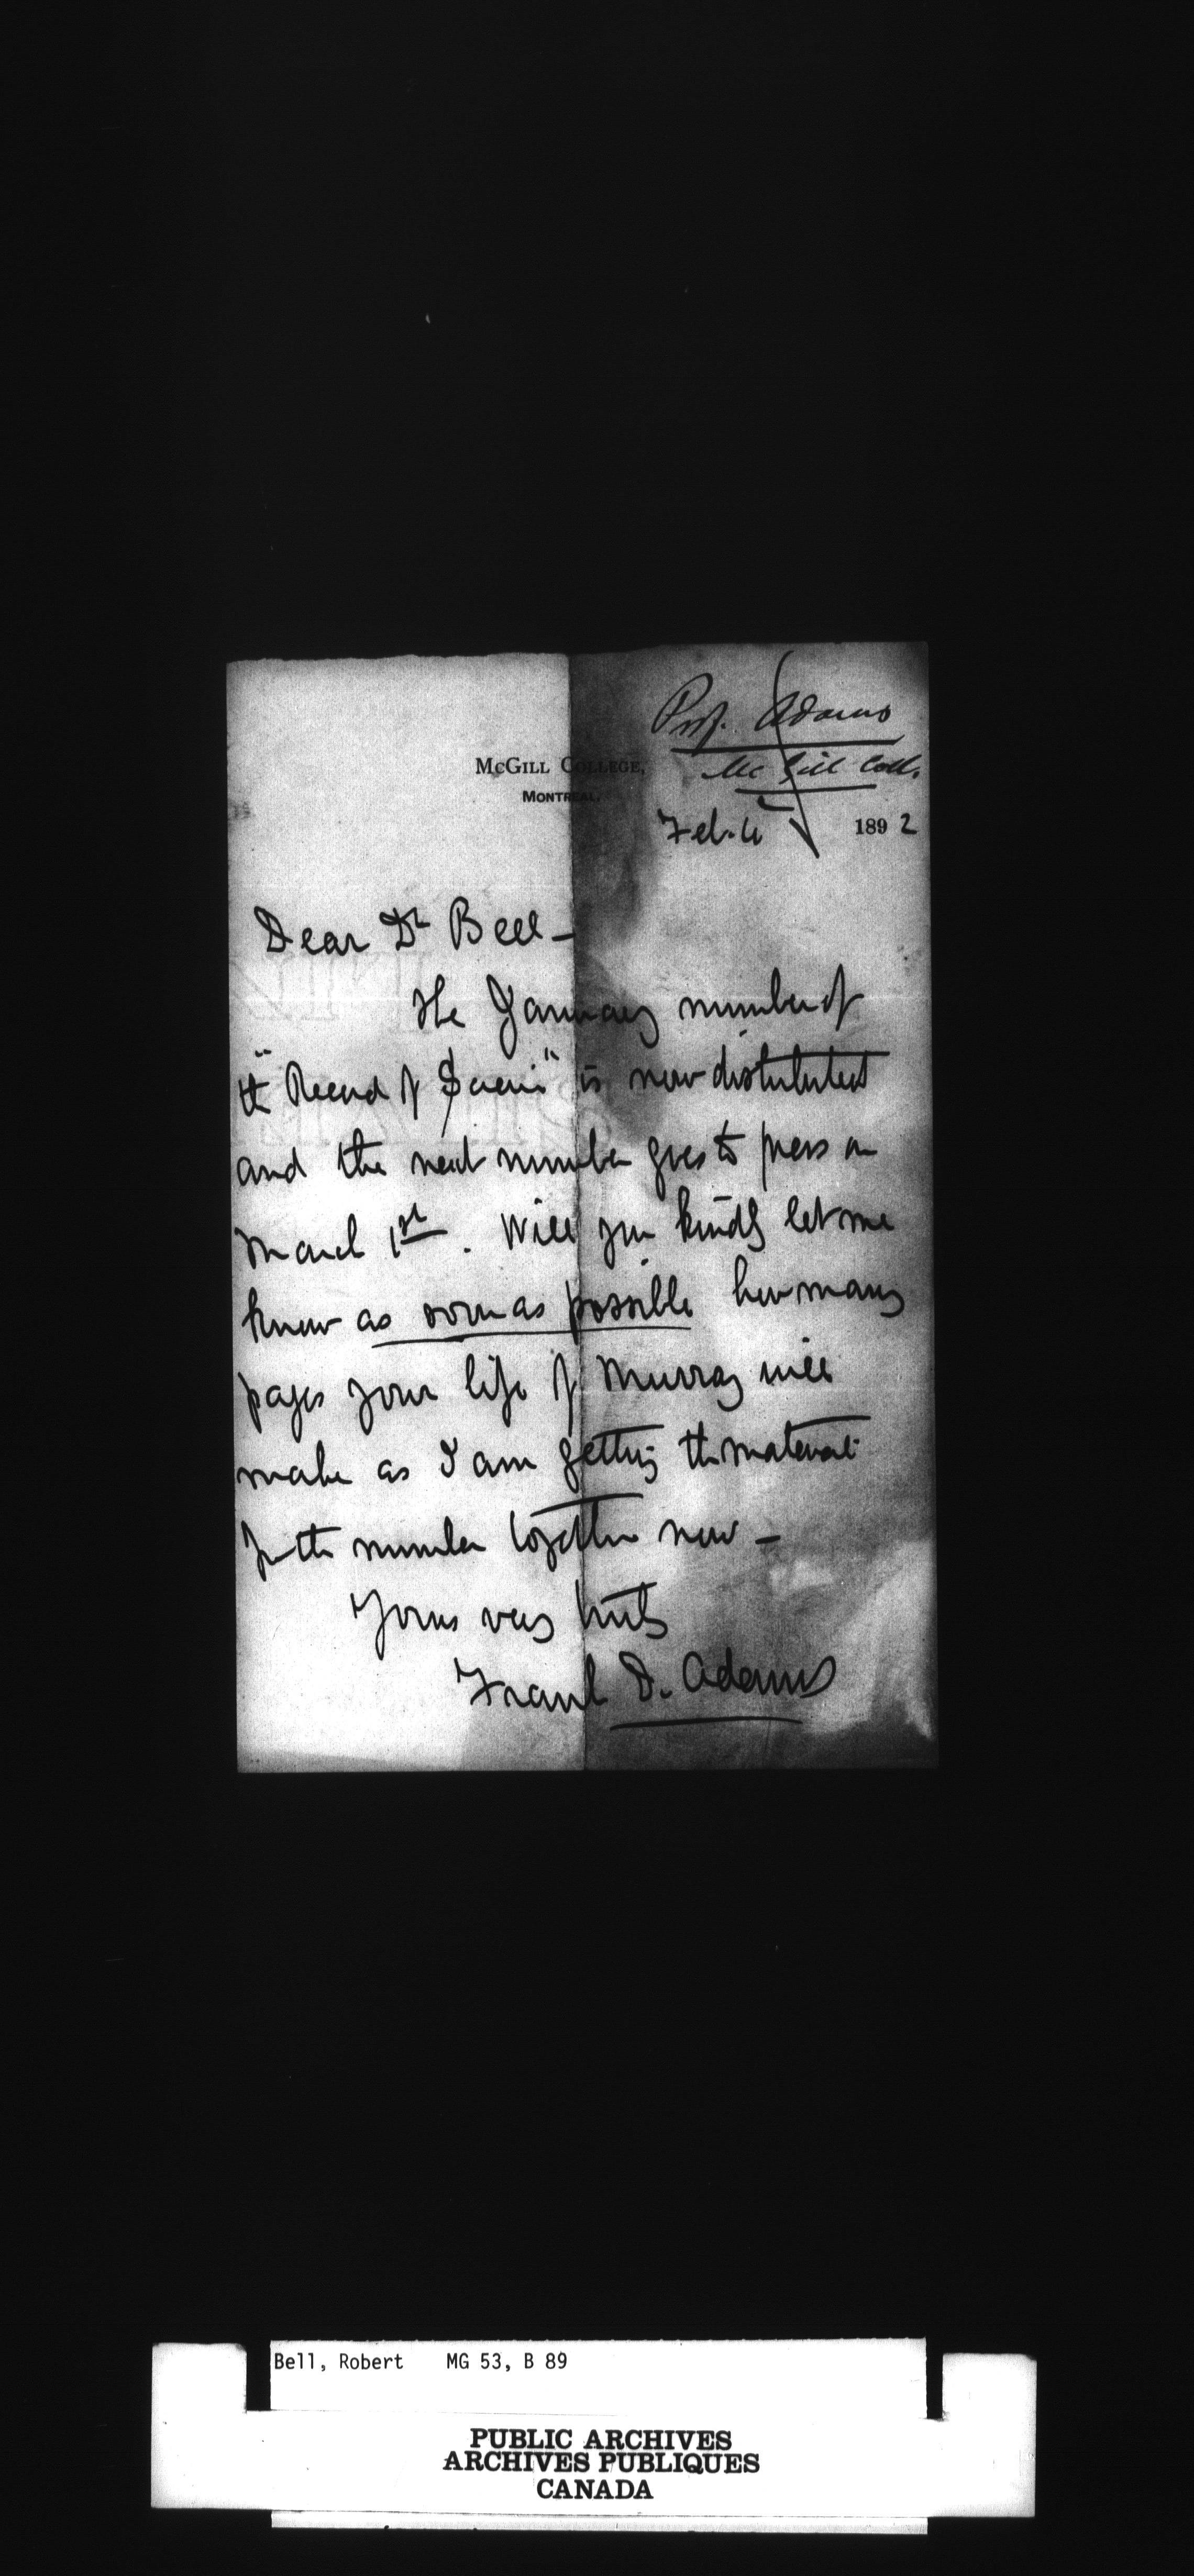 Prof. Adams
McGill Coll.
McGILL COLLEGE,
MONTREAL.
Feb. 189 2
Dear Dr Bell –
The January number of
"the Record of Science" is now distributed
and the next number goes to press on
March 1st. Will you kindly let me
know as soon as possible how many
pages your life of Murray will
make as I am getting the material
for the number together now –
Yours very truly
Frank D. Adams
Bell, Robert MG 53, B 89
PUBLIC ARCHIVES
ARCHIVES PUBLIQUES
CANADA